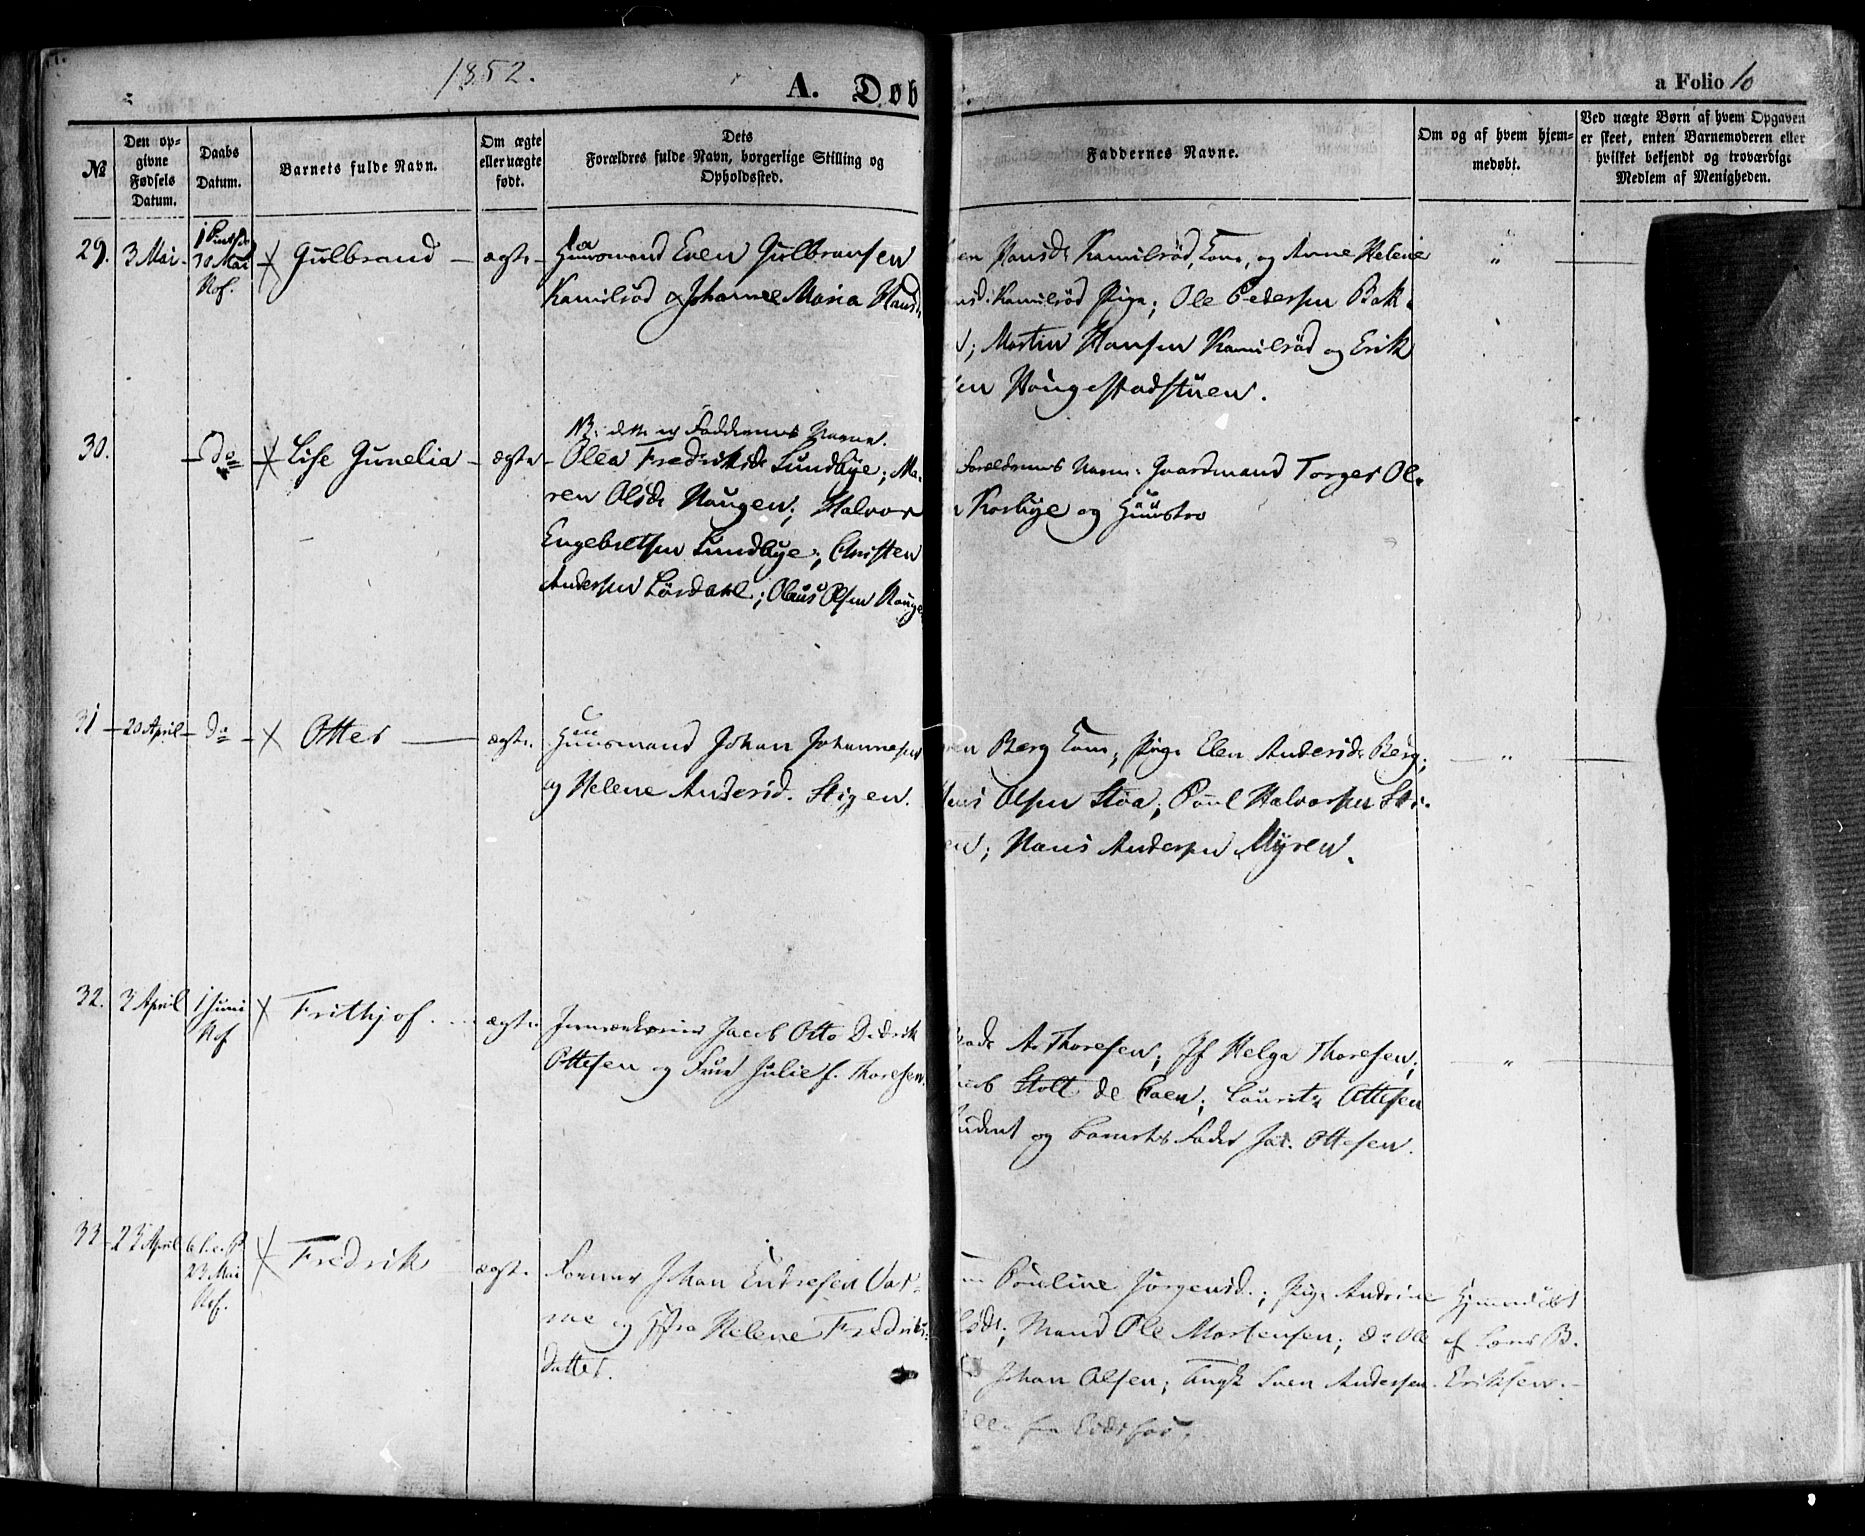 1852.
A. Døb
a Folio 10
№
Den op-
givne
Fødsels
Datum.
Daabs
Datum.
Barnets fulde Navn.
Om ægte
eller uægte
født.
Dets
Forældres fulde Navn, borgerlige Stilling og
Opholdssted.
Faddernes Navne.
Om og af hvem hjem-
medøbt.
Ved uægte Børn af hvem Opgaven
er skeet, enten Barnemoderen eller
hvilket bekjendt og troværdigt
Medlem af Menigheden.
29. 3 Mai 30 Mai Hof. Gulbrand ægte
Huusmand Even Gulbransen
Kamilsrød & Johanne Maria Hansd.
Hansdr Kamilsrød, Kone, og Anne Helene
Kamilsrød Pige; Ole Pedersen Bak-
Martin Hansen Kamilsrød og Erik
Haugestadstuen.
30. do Lise Gunelia ægte
NB: dette er Faddernes Navne.
Olea Fredriksdr Sundbye; Ma-
ren Olsdr Haugen; Halvor
Engebretsen Sundbye; Christen
Andersen Lørdahl; Olaus Olsen Hauge
Forældrenes Navn: Gaardmand Torger Ol-
Korsbye og Huustro
31 20 April do Otter ægte
Huusmand Johan Johannesen
og Helene Andersd. Stigen.
Berg Kone; Pige Elen Andersdr Berg;
Hans Olsen Stoa; Poul Halvorsen Sti-
en; Hans Andersen Myren.
32. 3 April 1 Juni Hof Frithjof ægte
Jacob Otto Didrik
Ottesen og Frue Julie f. Thoresen
A. Thoresen; Jf Helga Thoresen;
Stolt de Coen; Lauritz Ottesen
Student og Barnets Fader Jac. Ottesen.
33 23 April 23 Mai Hof. Fredrik ægte
Former Johan Endresen Var-
me og Hstro Helene Fredriks-
datter.
Pouline Jørgensd.; Pige Andrine
Mand Ole Mortensen; do Ole
Johan Olsen; Ungk Sven Andersen.
fra Eidsfos.
Hjemmedøbt
af Lars B.
Eriksen.